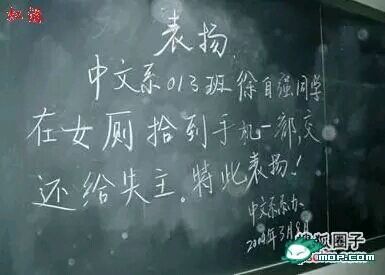 表扬
中文系013班徐自强同学
在女厕拾到手机一部,交
还给失主。特此表扬!
中文系系办
3月8日
圈子
MOP.com